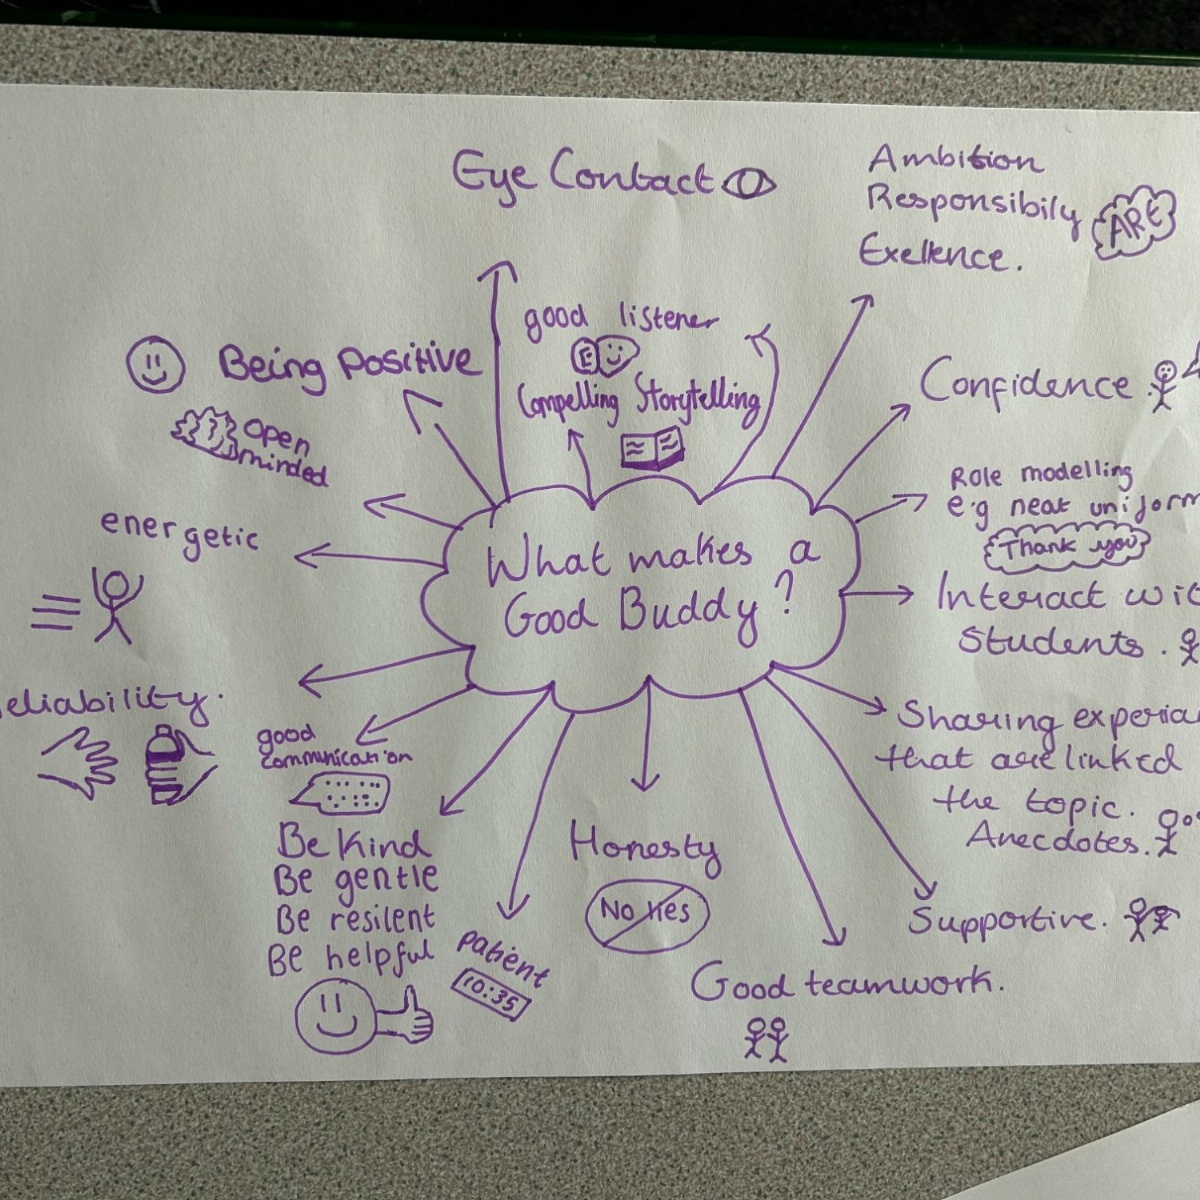 Eye Contact
Ambition
Responsibily
Exellence.
ARE
good listener
Compelling Storytelling
Being positive
Open
minded
energetic
Confidence
Role modelling
e.g neat uniform
Thank you
What makes a
Good Buddy?
Interact wit
Students.
eliability.
good
communication
Sharing experia
that are linked
the topic.
Anecdotes.
Be Kind
Be gentle
Be resilent
Be helpful
patient
10:35
Honesty
No lies
Supportive.
Good teamwork.